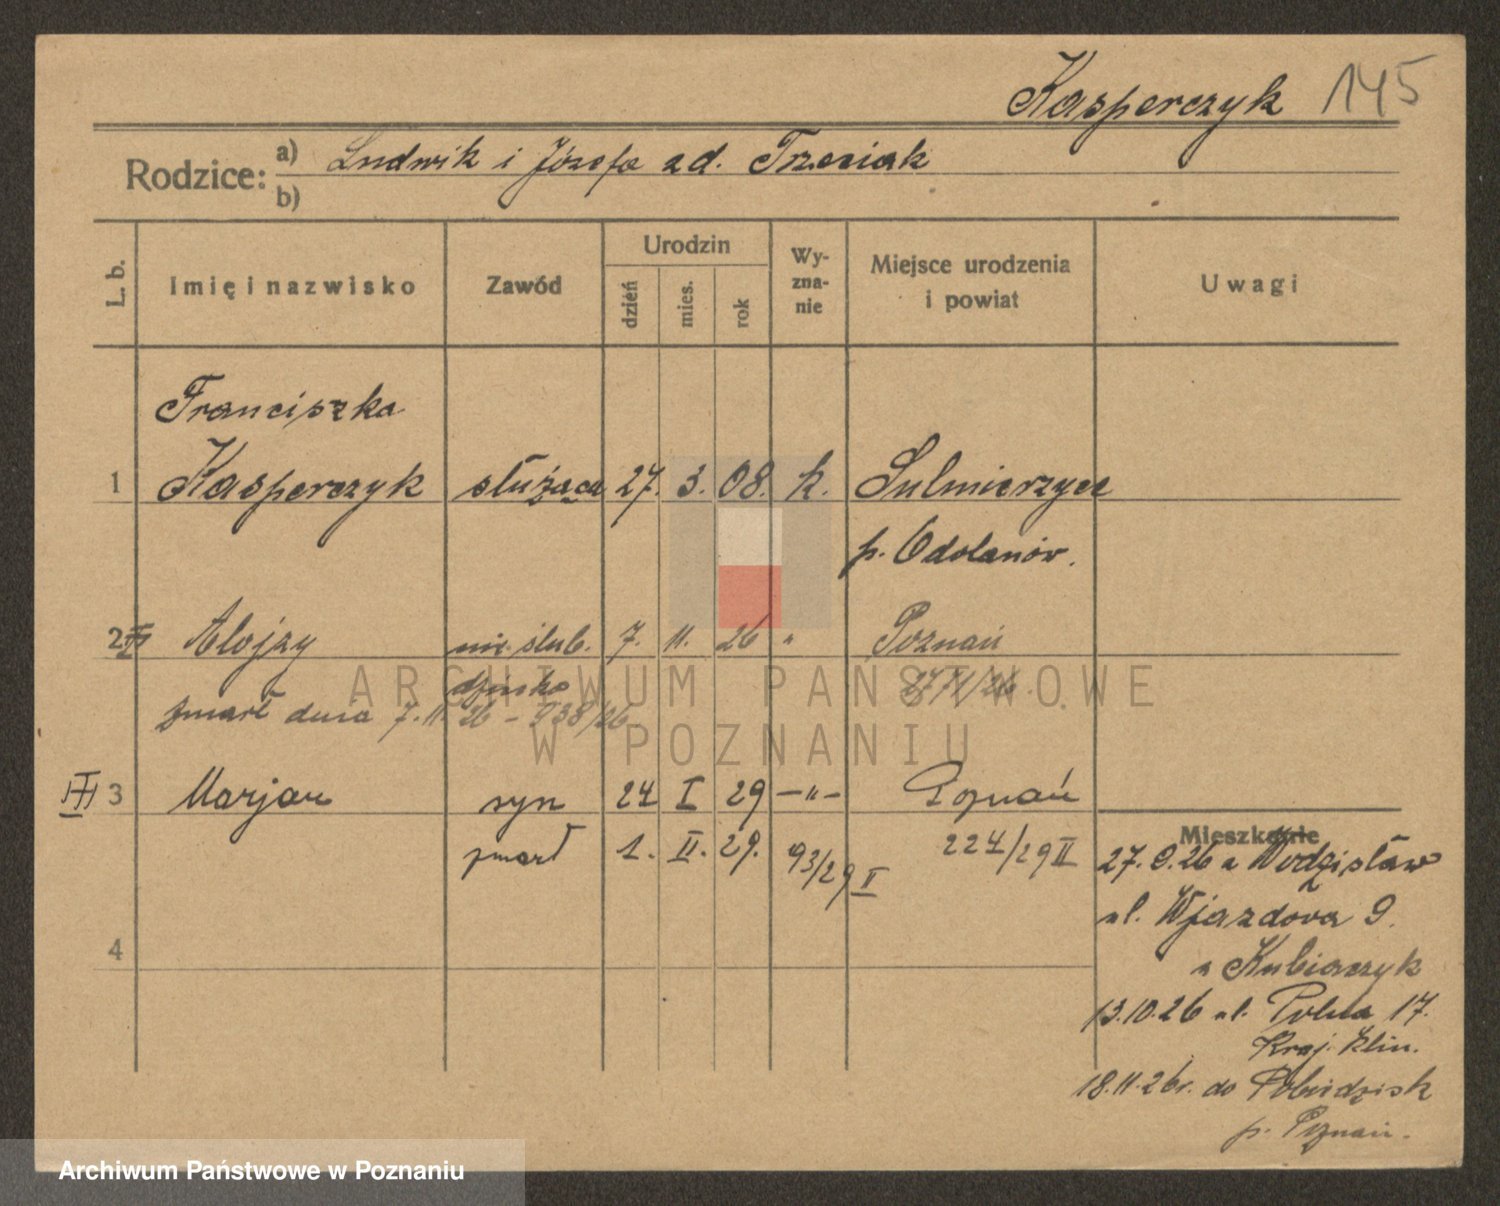 Kasperczyk 145
Rodzice: a) Ludwik i Józefa zd. Trzeciak
b)
L. b.
Imię i nazwisko
Zawód
Urodzin
dzień
mies.
rok
Wy-
zna-
nie
Miejsce urodzenia
i powiat
Uwagi
Franciszka
1 Kasperczyk służąca 27. 3. 08. k. Sulmierzyce
p. Odolanów.
2 Alojzy nie ślub. 7. 11. 26 " Poznań
dziecko
zmarł dnia 7.11.26 - 938/26
III 3 Marjan syn 24 I 29 -"- Poznań
zmarł 1. II. 29. 93/29 II 224/29 II
Mieszkanie
27.9.26 z Wodzisław
ul. Wjazdowa 9.
u Kubiaczyk
13.10.26 ul. Polna 17.
Kraj. Klin.
18.11.26r. do Pobiedzisk
p. Poznań.
4
ARCHIWUM PAŃSTWOWE
W POZNANIU
Archiwum Państwowe w Poznaniu